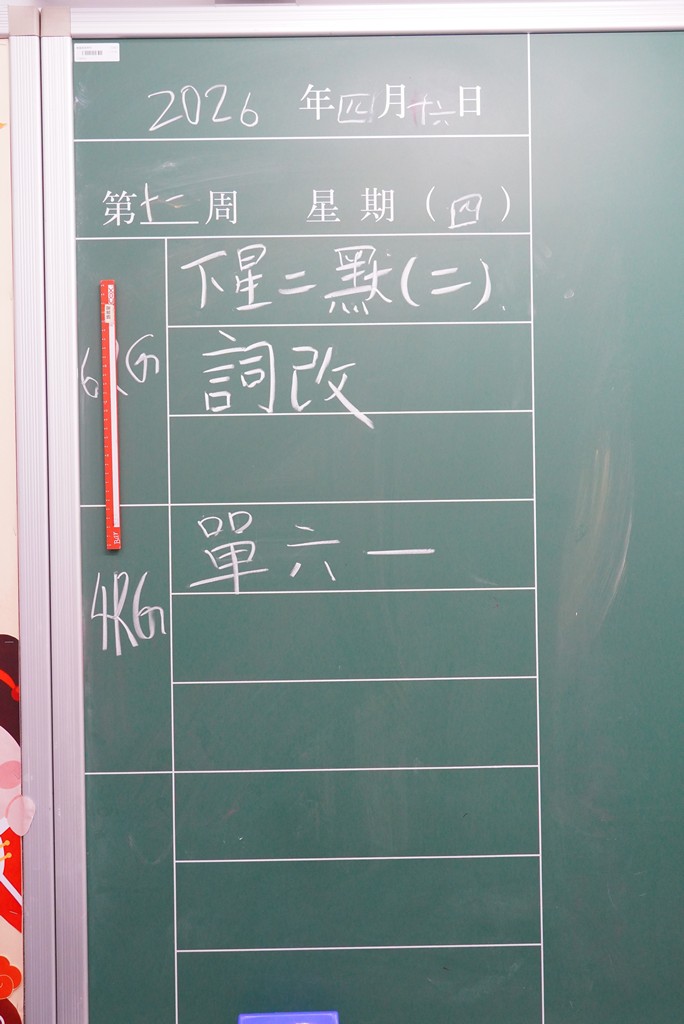 2026 年四月十六日
第十二周 星期（四）
6RG
下星二默(二)
詞改
4RG
單六一